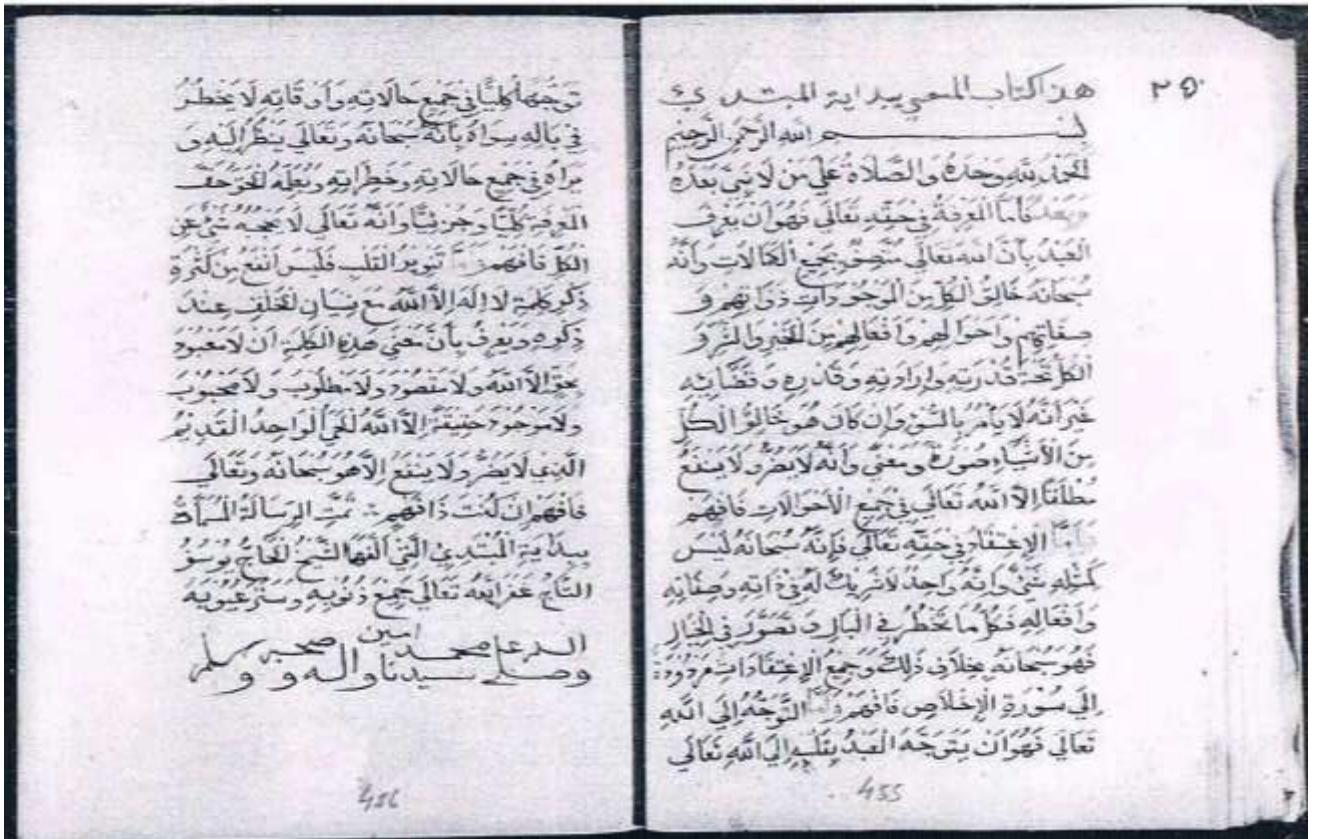 ٢٥٠
هذا كتاب المسمى ببداية المبتدي
بسم الله الرحمن الرحيم
الْحَمْدُ لِلَّهِ وَحْدَهُ وَالصَّلَاةُ عَلَى مَنْ لَا نَبِيَّ بَعْدَهُ
وَبَعْدُ فَأَمَّا الْمَعْرِفَةُ فِي حَقِّهِ تَعَالَى فَهُوَ أَنْ يَعْرِفَ
الْعَبْدُ بِأَنَّ اللهَ تَعَالَى مُتَّصِفٌ بِجَمِيعِ الْكَمَالَاتِ وَأَنَّهُ
سُبْحَانَهُ خَالِقُ الْكُلِّ مِنَ الْمَوْجُودَاتِ ذَوَاتِهِمْ وَ
صِفَاتِهِمْ وَأَحْوَالِهِمْ وَأَفْعَالِهِمْ مِنَ الْخَيْرِ وَالشَّرِّ وَ
الْكُلُّ تَحْتَ قُدْرَتِهِ وَإِرَادَتِهِ وَقَدَرِهِ وَقَضَائِهِ
غَيْرَ أَنَّهُ لَا يَأْمُرُ بِالسُّوءِ وَإِنْ كَانَ هُوَ خَالِقُ الْكُلِّ
مِنَ الْأَشْيَاءِ صُورَةً وَمَعْنًى وَأَنَّهُ لَا يَضُرُّ وَلَا يَنْفَعُ
مُطْلَقًا إِلَّا اللهُ تَعَالَى فِي جَمِيعِ الْأَحْوَالَاتِ فَافْهَمْ
وَأَمَّا الْإِعْتِقَادُ فِي حَقِّهِ تَعَالَى فَإِنَّهُ سُبْحَانَهُ لَيْسَ
كَمِثْلِهِ شَيْءٌ وَأَنَّهُ وَاحِدٌ لَا شَرِيكَ لَهُ فِي ذَاتِهِ وَصِفَاتِهِ
وَأَفْعَالِهِ فَكُلُّ مَا يَخْطُرُ فِي الْبَالِ وَتَصَوَّرَ فِي الْخَيَالِ
فَهُوَ سُبْحَانَهُ بِخِلَافِ ذَلِكَ وَجَمِيعُ الْإِعْتِقَادَاتِ مَرْدُودَةٌ
إِلَى سُوْرَةِ الْإِخْلَاصِ فَافْهَمْ وَأَمَّا التَّوَجُّهُ إِلَى اللهِ
تَعَالَى فَهُوَ أَنْ يَتَوَجَّهَ الْعَبْدُ بِقَلْبِهِ إِلَى اللهِ تَعَالَى
455
تَوَجُّهًا كُلِّيًّا فِي جَمِيعِ حَالَاتِهِ وَأَوْقَاتِهِ لَا يَخْطُرُ
فِي بَالِهِ سِوَاهُ بِأَنَّهُ سُبْحَانَهُ وَتَعَالَى يَنْظُرُ إِلَيْهِ وَ
يَرَاهُ فِي جَمِيعِ حَالَاتِهِ وَخَطَرَاتِهِ وَيَعْلَمُهُ الْحَقُّ حَقَّ
الْمَعْرِفَةِ كُلِّيًّا وَجُزْئِيًّا وَأَنَّهُ تَعَالَى لَا يَحْجُبُهُ شَيْءٌ عَنِ
الْكُلِّ فَافْهَمْ وَأَمَّا تَنْوِيرُ الْقَلْبِ فَلَيْسَ أَنْفَعَ مِنْ كَثْرَةِ
ذِكْرِ كَلِمَةِ لَا إِلَهَ إِلَّا اللهُ مَعَ نِسْيَانِ الْخَلْقِ عِنْدَ
ذِكْرِهِ وَيَعْرِفُ بِأَنَّ مَعْنَى هَذِهِ الْكَلِمَةِ أَنْ لَا مَعْبُودَ
بِحَقٍّ إِلَّا اللهُ وَلَا مَقْصُودَ وَلَا مَطْلُوبَ وَلَا مَحْبُوبَ
وَلَا مَوْجُودَ حَقِيقَةً إِلَّا اللهُ الْحَيُّ الْوَاحِدُ الْقَدِيْمُ
الَّذِي لَا يَضُرُّ وَلَا يَنْفَعُ إِلَّا هُوَ سُبْحَانَهُ وَتَعَالَى
فَافْهَمْ إِنْ كُنْتَ ذَا فَهْمٍ تَمَّتِ الرِّسَالَةُ الْمُسَمَّاةُ
بِبِدَايَةِ الْمُبْتَدِئِ الَّتِي أَلَّفَهَا الشَّيْخُ الْحَاجُّ يُوسُفُ
التَّاجُ غَفَرَ اللهُ تَعَالَى جَمِيعَ ذُنُوبِهِ وَسَتَرَ عُيُوبَهُ
امين
وصلى سيدنا محمد واله وصحبه وسلم
456